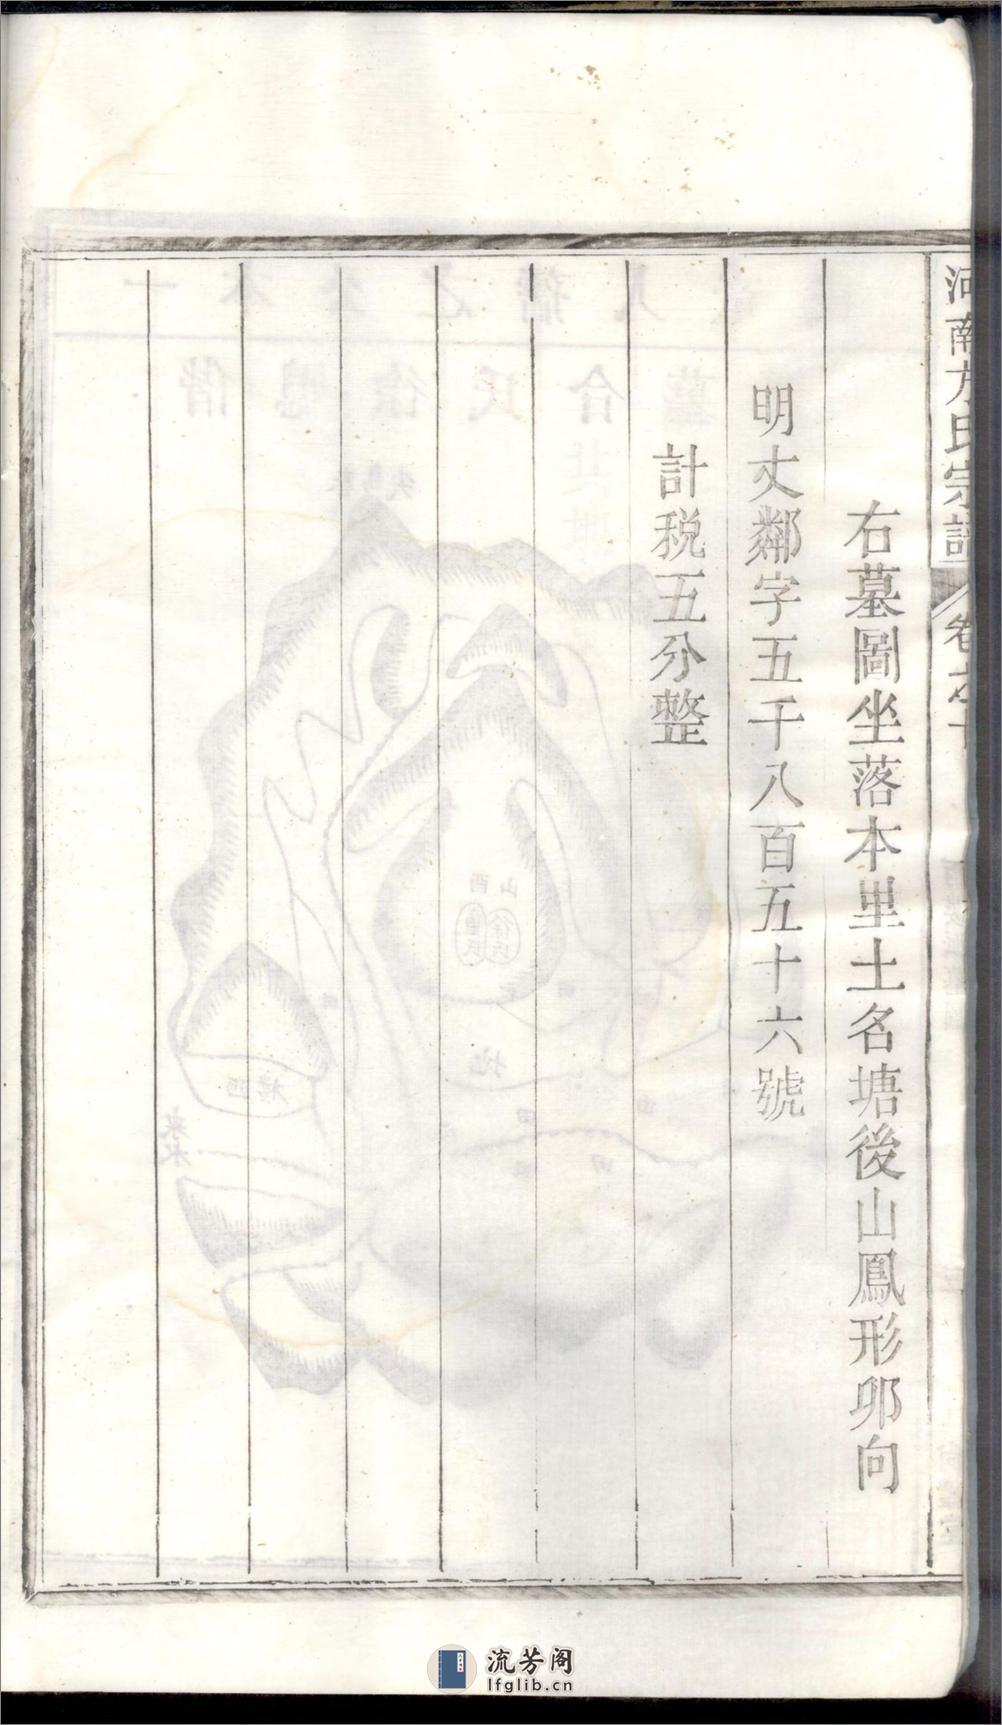 河南方氏宗譜
卷之十
右墓圖坐落本里土名塘後山鳳形卯向
明丈鄰字五千八百五十六號
計税五分整
流芳阁
lfglib.cn